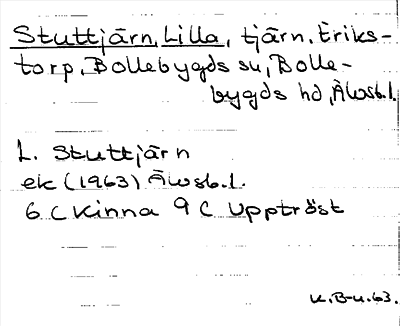 Stuttjärn, Lilla, tjärn, Eriks-
torp, Bollebygds sn, Bolle-
bygds hd, Älvsb.l.
L. Stuttjärn
ek (1963) Älvsb.l.
6 C Kinna 9 C Uppträst
K.B-u.63.